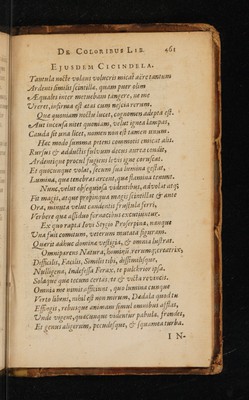 DE COLORIBUS LIB. 461
EIUSDEM CICINDELA.
Tantula nocte volans volucris micat aëre tantum
Ardentis similis scintillæ, quam puer olim
Æquales inter metuebam tangere, ne me
Vreret, infirma est ætas cum nescia rerum.
Quæ quoniam noctu lucet, cognomen adepta est.
Aut incensa nitet quoniam, velut ignea lampas,
Cauda sit una licet, nomen non est tamen unum.
Hæc modo summa petens commotis emicat alis
Rursus & adductis fulvum decus aurea condit,
Ardentique procul fugiens levis igne coruscat.
Et quocunque volat, secum sua lumina gestat.
Lumina, quæ tenebras arcent, quæ flammea
Nunc, velut obsequiosa videntibus, advolat atq;
Fit magis, atque propinqua magis scintillat & ante
Ora, minuta velut candentis frustula ferri,
Verbere quæ assiduo fornacibus excutiuntur.
Ex quo rapta Iovi Stygio Proserpina,
Una fuit comitum, veterum mutata figuram.
Quærit adhuc dominæ vestigia, & omnia lustrat.
Omniparens Natura, hominis rerumq; creatrix,
Difficilis, Facilis, Similis tibi, dissimilisque,
Nulligena, Indefessa Ferax, te pulchrior ipsa.
Solaque quæ tecum certas, te & victa revincis.
Omnia me nimis afficiunt, quo lumina cunque
Verto libens, nihil est non mirum, Dædala quod tu
Effingis, rebusque animam simul omnibus afflas,
Unde vigent, quæcunque videntur pabula, frondes,
Et genus aligerum, pecudesque, & squamea turba.
I N-